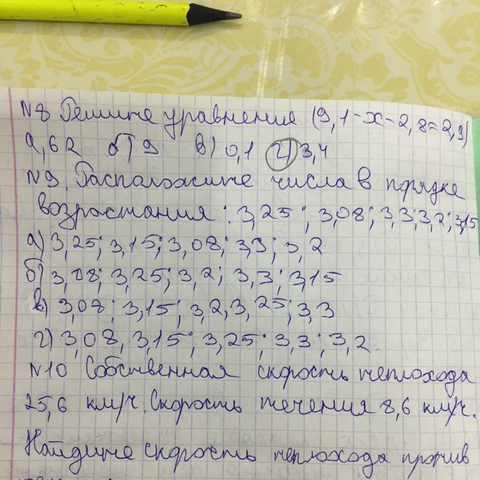 N8 Решите уравнения (9,1-x-2,8=2,9)
а,62 б) 9 в) 0,1 г) 3,4
N9. Расположите числа в порядке
возрастания: 3,25; 3,08; 3,3; 3,2; 3,15
а) 3,25; 3,15; 3,08; 3,3; 3,2
б) 3,08; 3,25; 3,2; 3,3; 3,15
в) 3,08; 3,15; 3,2 3,25; 3,3
г) 3,08, 3,15; 3,25; 3,3; 3,2.
N10 Собственная скорость теплохода
25,6 км/ч. Скорость течения 8,6 км/ч.
Найдите скорость теплохода против